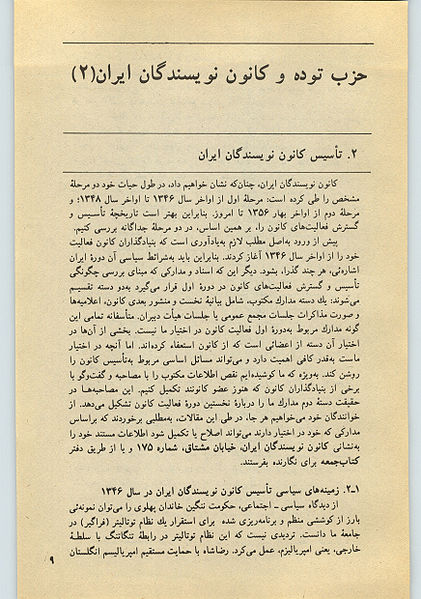 حزب توده و کانون نویسندگان ایران(۲)
۲. تأسیس کانون نویسندگان ایران
کانون نویسندگان ایران، چنان‌که نشان خواهیم داد، در طول حیات خود دو مرحلهٔ
مشخص را طی کرده است: مرحلهٔ اول از اواخر سال ۱۳۴۶ تا اواخر سال ۱۳۴۸؛ و
مرحلهٔ دوم از اواخر بهار ۱۳۵۶ تا امروز. بنابراین بهتر است تاریخچهٔ تأسیس و
گسترش فعالیت‌های کانون را، بر همین اساس، در دو مرحلهٔ جداگانه بررسی کنیم.
پیش از ورود به‌اصل مطلب لازم به‌یادآوری است که بنیادگذاران کانون فعالیت
خود را از اواخر سال ۱۳۴۶ آغاز کردند. بنابراین باید به‌شرائط سیاسی آن دورهٔ ایران
اشاره‌ئی، هر چند گذرا، بشود. دیگر این که اسناد و مدارکی که مبنای بررسی چگونگی
تأسیس و گسترش فعالیت‌های کانون در دورهٔ اول قرار می‌گیرد به‌دو دسته تقسیم
می‌شوند: یك دسته مدارك مکتوب، شامل بیانیهٔ نخست و منشور بعدی کانون، اعلامیه‌ها
و صورت مذاکرات جلسات مجمع عمومی یا جلسات هیأت دبیران. متأسفانه تمامی این
گونه مدارك مربوط به‌دورهٔ اول فعالیت کانون در اختیار ما نیست. بخشی از آن‌ها در
اختیار آن دسته از اعضائی است که از کانون استعفاء کرده‌اند. اما آنچه در اختیار
ماست به‌قدر کافی اهمیت دارد و می‌تواند مسائل اساسی مربوط به‌تأسیس کانون را
روشن کند. به‌ویژه که ما کوشیده‌ایم نقص اطلاعات مکتوب را با مصاحبه و گفت‌وگو با
برخی از بنیادگذاران کانون که هنوز عضو کانونند تکمیل کنیم. این مصاحبه‌ها در
حقیقت دستهٔ دوم مدارك ما را دربارهٔ نخستین دورهٔ فعالیت کانون تشکیل می‌دهد. از
خوانندگان خود می‌خواهیم هر جا، در طی این مقالات، به‌مطلبی برخوردند که براساس
مدارکی که خود در اختیار دارند می‌تواند اصلاح یا تکمیل شود اطلاعات مستند خود را
به‌نشانی کانون نویسندگان ایران، خیابان مشتاق، شماره ۱۷۵ و یا از طریق دفتر
کتاب‌جمعه برای نگارنده بفرستند.
۲ـ۱. زمینه‌های سیاسی تأسیس کانون نویسندگان ایران در سال ۱۳۴۶
از دیدگاه سیاسی ـ اجتماعی، حکومت ننگین خاندان پهلوی را می‌توان نمونه‌ئی
بارز از کوششی منظم و برنامه‌ریزی شده برای استقرار یك نظام توتالیتر (فراگیر) در
جامعهٔ ما دانست. تردیدی نیست که این نظام توتالیتر در رابطهٔ تنگاتنگ با سلطهٔ
خارجی، یعنی امپریالیزم، عمل می‌کرد. رضاشاه با حمایت مستقیم امپریالیسم انگلستان
۹